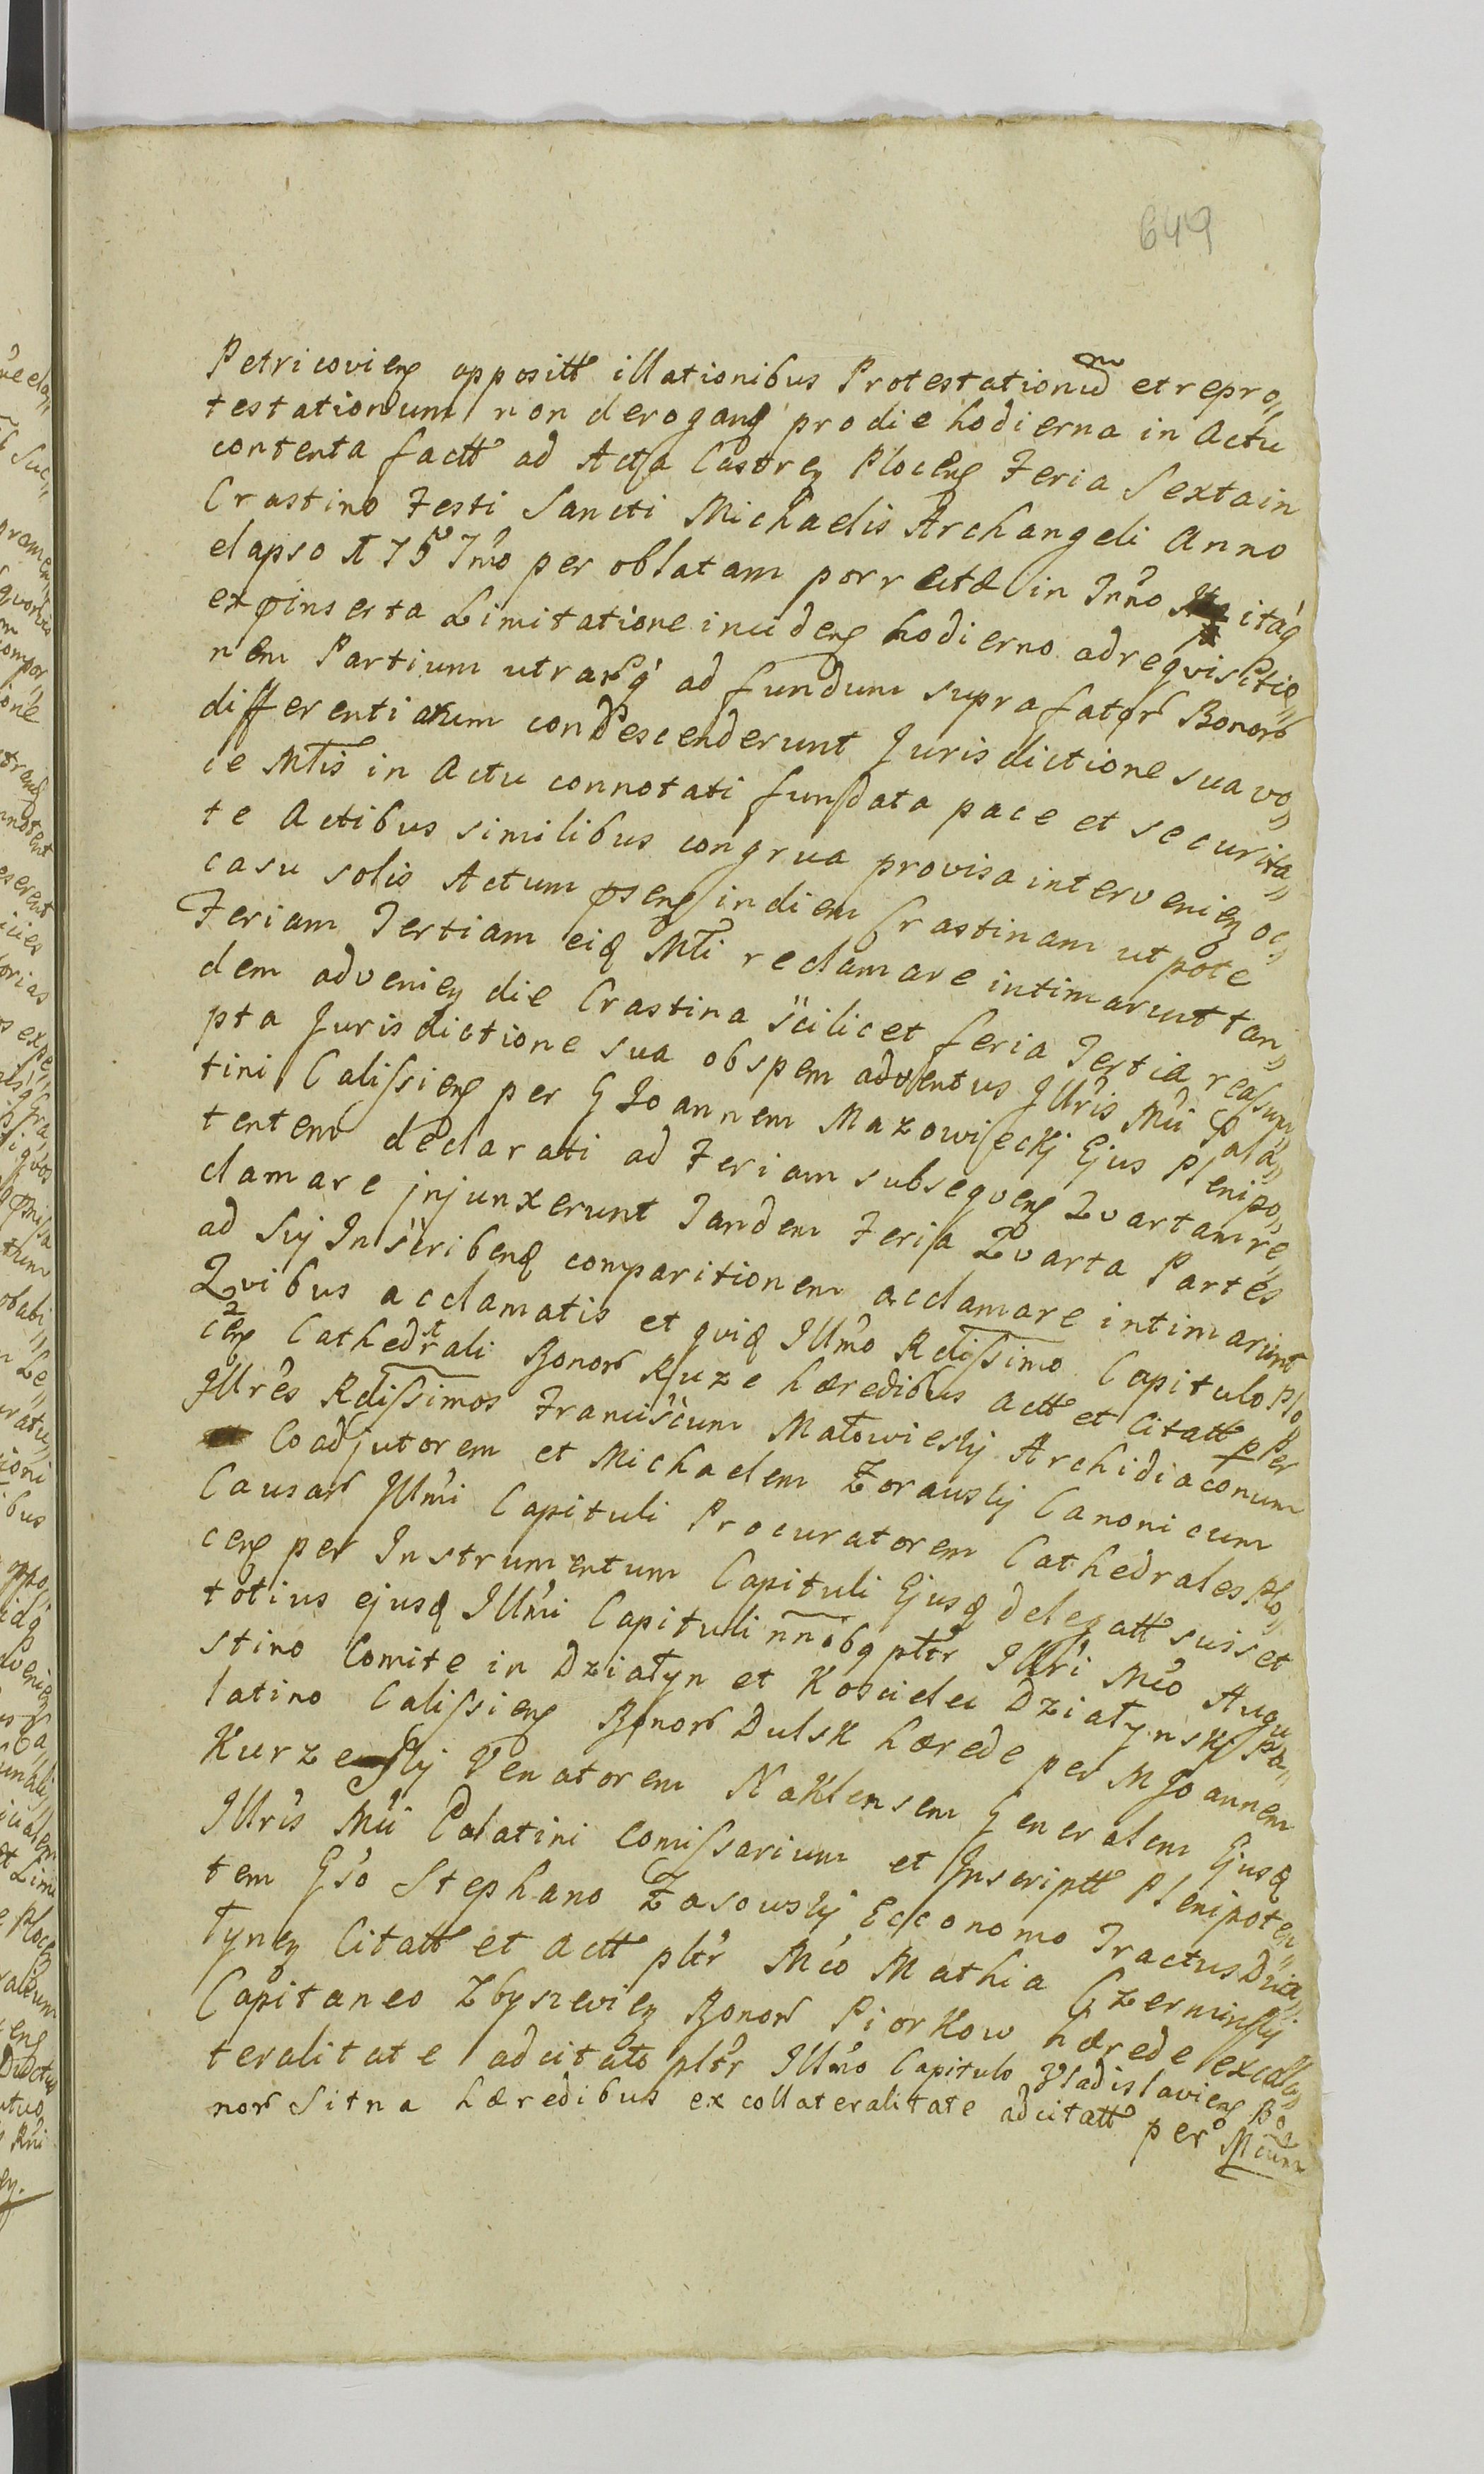 649
Petricovieñ oppositt illationibus Protestationum et repro„
testationum non deroganq pro die hodierna in Actu
contenta factt ad Acta Castreñ Ploceñ Feria Sexta in
Crastino Festi Sancti Michaelis Archangeli Anno
elapso 1751mo per oblatam porrectæ in Inno itaq
ex p̄inserta Limitatione incideñ hodierno ad reqvisitio„
nem Partium utrarq ad fundum suprafator Bonor
differentiarum condescenderunt Jurisdictione sua vo„
ce Mtis in Actu connotati fundata pace et securita„
te Actibus similibus congrua provisa intervenien oc„
casu solis Actum p̄señ in diem Crastinam utpote
Feriam Tertiam eiq Mti reclamare intimarunt tan„
dem advenieñ die Crastina scilicet feria Tertia reassum„
pta Jurisdictione sua ob spem adventus Jllris Mci Pala„
tini Calissieñ per G Joannem Mazowieckj Ejus Plenipo„
tentem declarati ad Feriam subseqveñ Qvartam re„
clamare jnjunxerunt Tandem Feria Qvarta Partes
ad Sui Inscribenq comparitionem acclamare intimarunt
Qvibus acclamatis et qviq Illmo Rdissimo Capitulo Plo„
ceñ Cathedrali Bonor Ruze hæredibus actt et Citatt p Per
Jllres Rdissimos Franciscum Małowieski Archidiaconum
Coadjutorem et Michaelem Zorauski Canonicum
Causar Jllmi Capituli Procuratorem Cathedrales Plo„
ceñ per Instrumentum Capituli Ejusq delegatt suis et
totius ejusq Illmi Capituli nnibq pltr Illri Mco Augu„
stino Comite in Działyn et Koscielec Działynski Pa„
latino Calissieñ Bonor Dulsk hærede per M Joannem
Kurzeski Venatorem Naklensem Generalem Ejusq
Illris Mci Palatini Comissarium et Jnscriptt Plenipoten„
tem Gso Stephano Zasowski Ecconomo Tractus Dzia„
łyneñ Citatt et actt pltr Mco Mathia Czerminski
Capitaneo Zbyszevieñ Bonor Piorkow hærede ex colla„
teralitate adcitato pltr Illmo Capitulo Vladislavieñ Bo„
nor Sitna hæredibus ex collateralitate adcitatt per Mcum